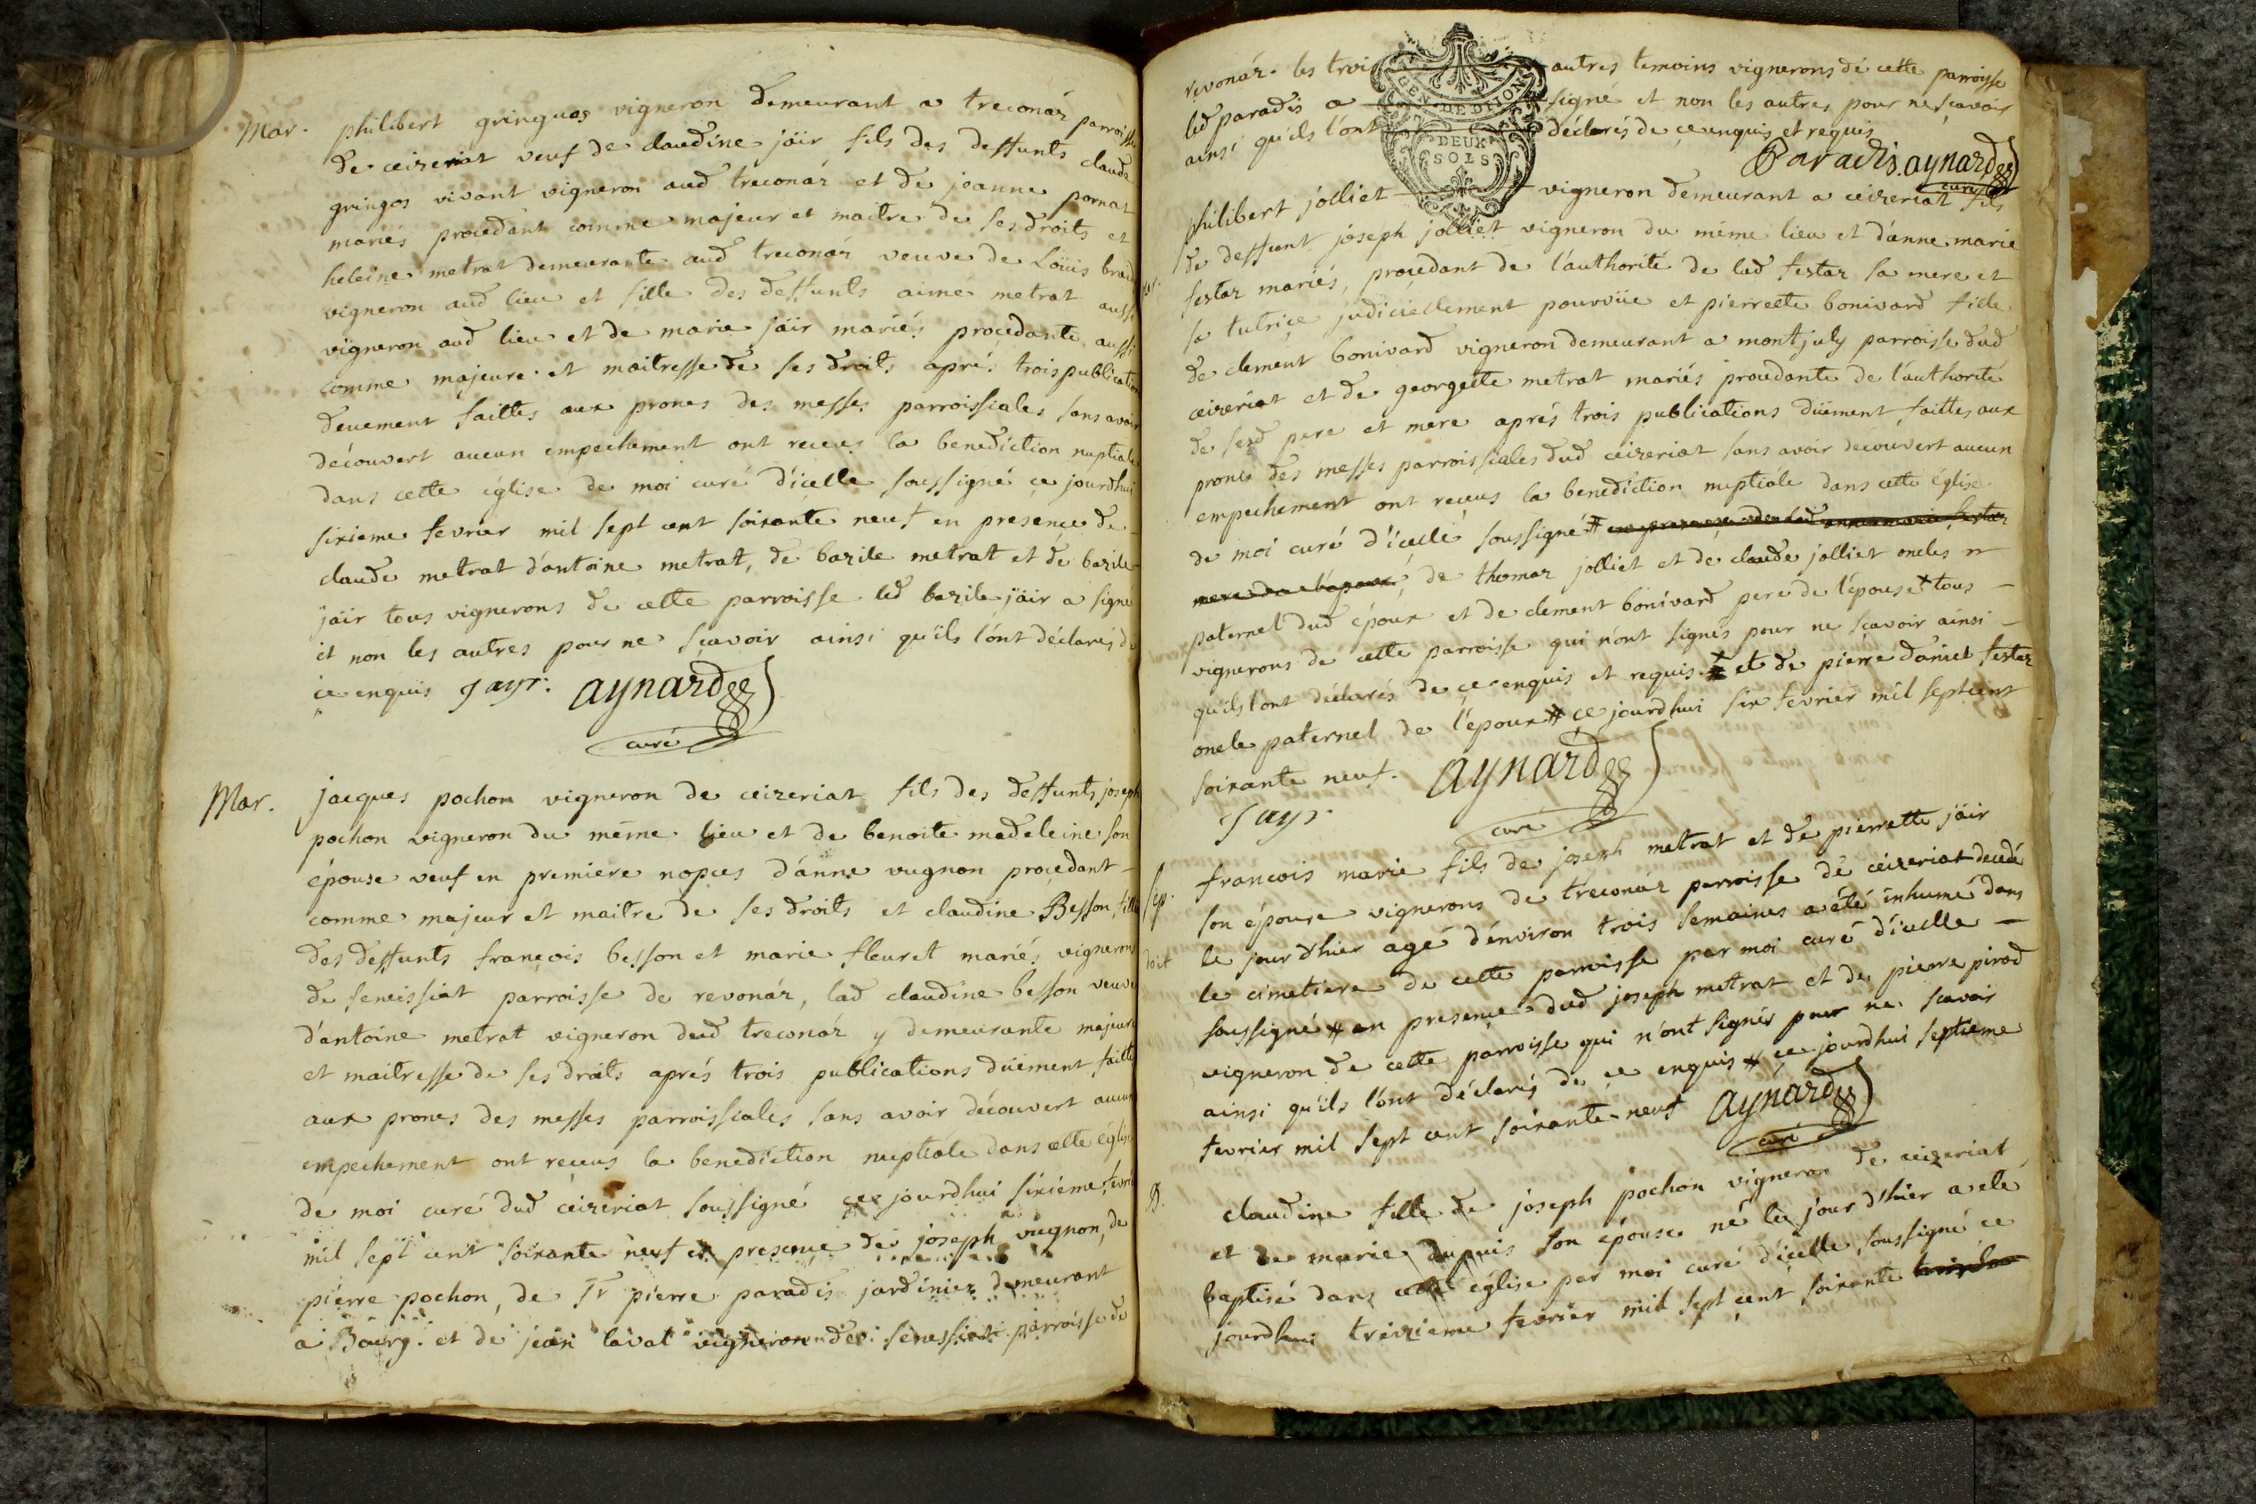 Mar. philibert gringuos vigneron demeurant a treconáz parroisse
de ceizeriat veuf de claudine jäir fils des deffunts claude
gringos vivant vigneron aud treconáz et de jeanne pornat
mariés procedant comme majeur et maitre de ses droits et
heleine metrat demeurante aud treconáz veuve de Loüis
vigneron aud lieu et fille des deffunts aimé metrat aussi
vigneron aud lieu et de marie jäir mariés procedante aussi
comme majeure et maitresse de ses droits aprés trois publication
deuement faittes aux prones des messes parroissiales sans avoir
découvert aucun empechement ont receus la benediction nuptiale
dans cette église de moi curé d'icelle soussigné ce jourdhui
sixieme fevrier mil sept cent soixante neuf en presence de
claude metrat d'antoine metrat, de bazile metrat et de bazile
jäir tous vignerons de cette parroisse led bazile jäir a signé
et non les autres pour ne sçavoir ainsi qu'ils l'ont déclarés de
ce enquis Jayr. aynard
curé
Mar. jacques pochon vigneron de ceizeriat fils des deffunts joseph
pochon vigneron du méme lieu et de benoite madeleine son
épouse veuf en premiere nopces d'anne vugnon procedant
comme majeur et maitre de ses droits et claudine Besson fille
des deffunts françois besson et marie fleuret mariés vignerons
de seneissiat parroisse de revonáz, lad claudine besson veuve
d'antoine metrat vigneron dud treconáz y demeurante majeure
et maitresse de ses droits aprés trois publications düement faitte
aux prones des messes parroissiales sans avoir découvert aucun
empechement ont receus la benediction nuptiale dans cette église
de moi curé dud ceizeriat soussigné ce jourdhui sixiéme fevrier
mil sept cent soixante neuf en presence de joseph vugnon, de
pierre pochon, de Sr pierre paradis jardinier demeurant
a Bourg. et de jean laval vigneron de senessiat parroisse de
revonáz. les trois autres temoins vignerons de cette parroisse
led paradis a signé et non les autres pour ne scavoir
ainsi qu'ils l'ont déclarés de ce enquis et requis
GEN. DE DIJON
DEUX
SOLS
Paradis. aynard
curé
philibert jolliet vigneron demeurant a ceizeriat fils
de deffunt joseph jolliet vigneron du méme lieu et d'anne marie
festaz mariés, procedant de l'authorité de lad festaz sa mere et
sa tutrice judiciellement pourvüe et pierrette bonivard fille
de clement bonivard vigneron demeurant a montjuly parroisse dud
ceizeriat et de georgette metrat mariés procedante de l'authorité
de sesd pere et mere aprés trois publications düement faittes aux
prones des messes parroissiales dud ceizeriat sans avoir decouvert aucun
empechement ont receus la benediction nuptiale dans cette église
de moi curé d'icelle soussigné # en presence de lad anne marie festaz
mere de l'epoux, de thomaz jolliet et de claude jolliet oncles
paternel dud époux et de clement bonivard pere de l'épouse # tous
vignerons de cette parroisse qui n'ont signés pour ne sçavoir ainsi
qu'ils l'ont déclarés de ce enquis et requis # et de pierre daniel festaz
oncle paternel de l'epoux # ce jourdhui six fevrier mil sept cent
soixante neuf. aynard
Jayr curé
Sep. francois marie fils de joseph metrat et de pierrette jäir
son épouse vignerons de treconáz parroisse de ceizeriat decedé
le jour d'hier agé d'environ trois semaines a été inhumé dans
le cimetiere de cette parroisse par moi curé d'icelle
soussigné # en presence dud joseph metrat et de pierre pirod
vigneron de cette parroisse qui n'ont signés pour ne scavoir
ainsi qu'ils l'ont déclarés de ce enquis # ce jourdhui septieme
fevrier mil sept cent soixante neuf aynard
curé
B. claudine fille de joseph pochon vigneron de ceizeriat
et de marie dupuis son épouse né le jour d'hier a ete
baptisé dans cette église par moi curé d'icelle soussigné ce
jourdhui treizieme fevrier mil sept cent soixante